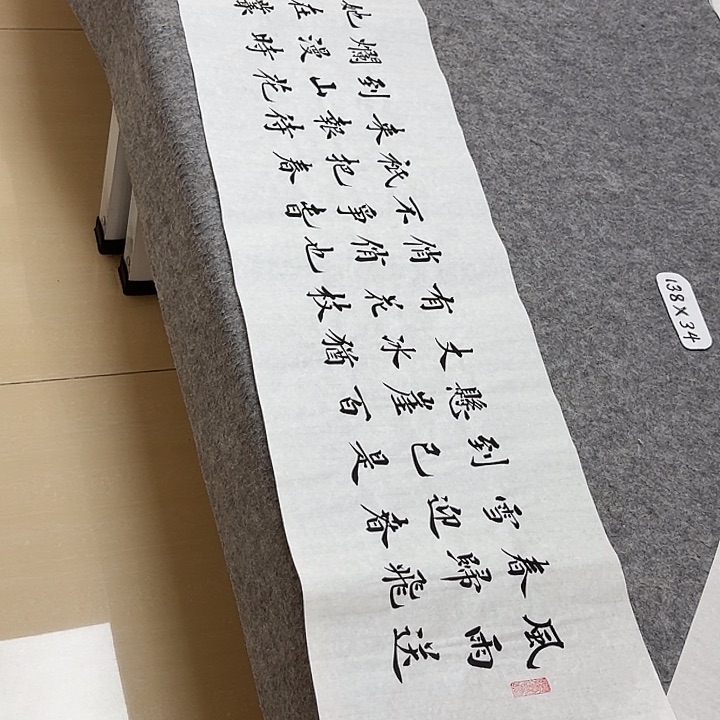 風雨送
春歸飛
雪迎春
到已是
懸崖百
丈冰猶
有花枝
俏俏也
不爭春
祇把春
来報待
到山花
爛漫時
她在叢
138X34